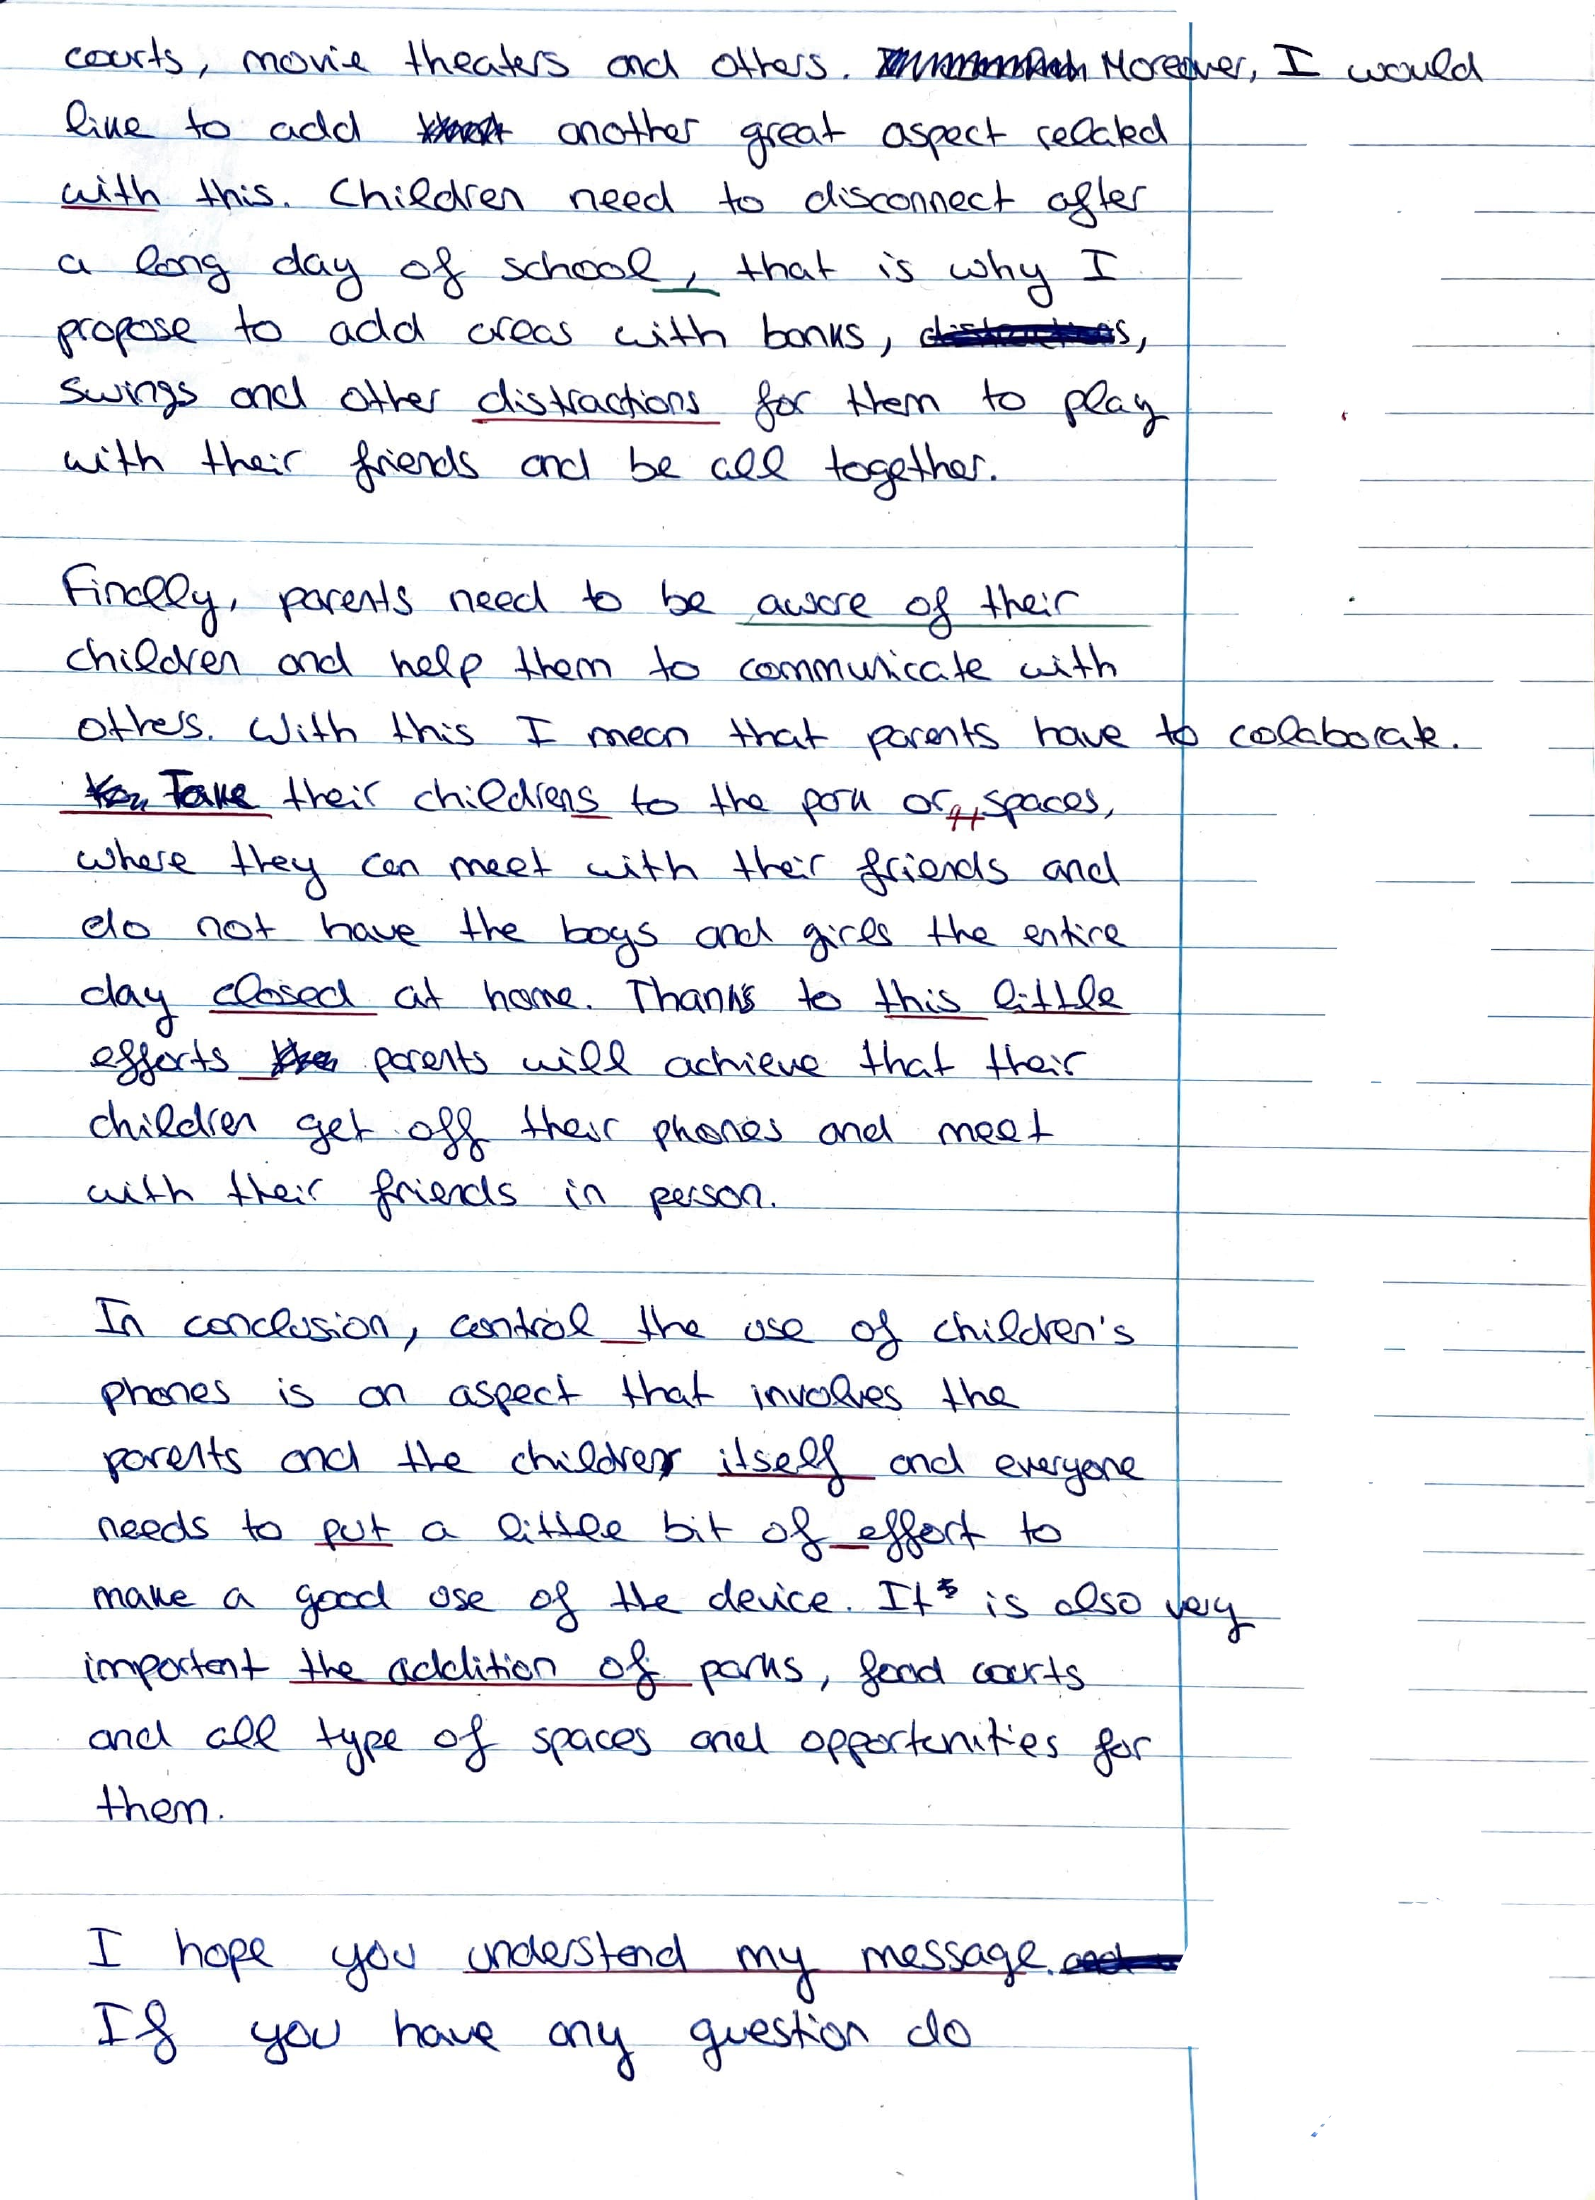 courts, movie theaters and others. Moreover, I would
like to add another great aspect related
with this. Children need to disconnect after
a long day of school, that is why I
propose to add areas with banks,
swings and other distractions for them to play
with their friends and be all together.
Finally, parents need to be aware of their
children and help them to communicate with
others. With this I mean that parents have to colaborate.
Take their childrens to the park or spaces,
where they can meet with their friends and
do not have the boys and girls the entire
day closed at home. Thanks to this little
efforts parents will achieve that their
children get off their phones and meet
with their friends in person.
In conclusion, control the use of children's
phones is an aspect that involves the
parents and the children itself and everyone
needs to put a little bit of effort to
make a good use of the device. It is also very
important the addition of parks, food courts
and all type of spaces and opportunities for
them.
I hope you understand my message.
If you have any question do